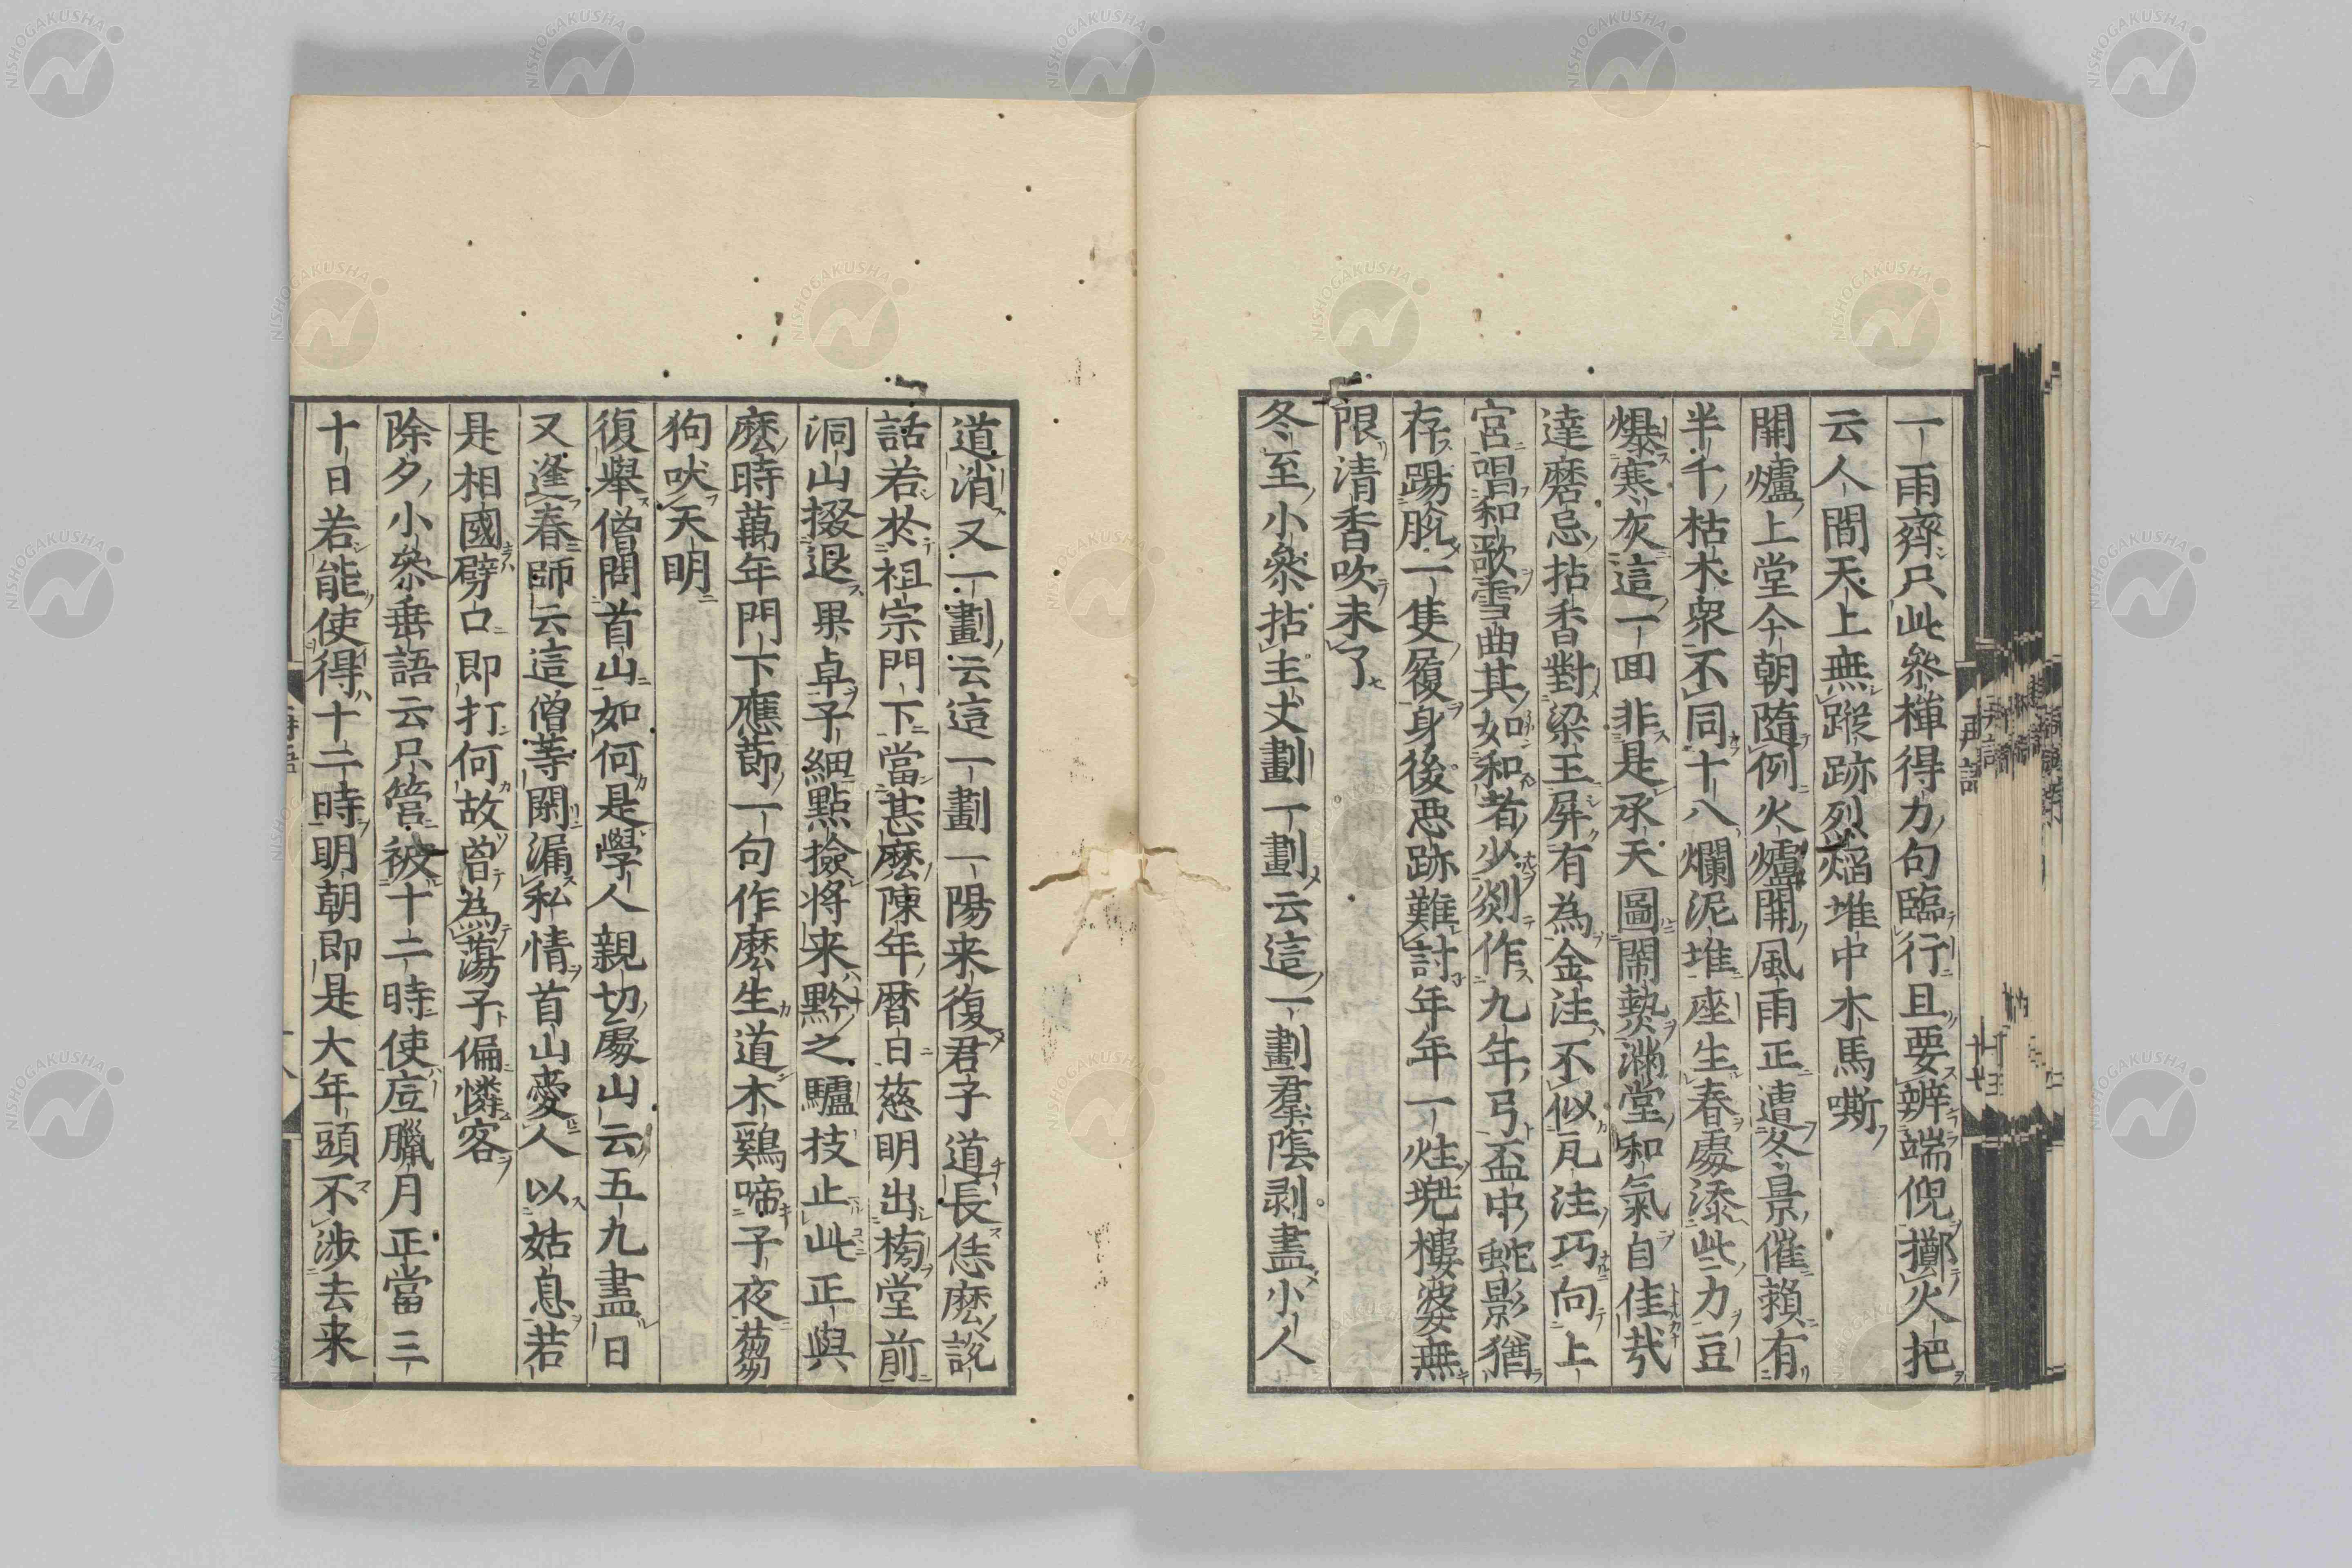 一雨齊只此參禪得力句臨行且要辨端倪擲火把
云人間天上無蹤跡烈焰堆中木馬嘶
開爐上堂今朝隨例火爐開風雨正遭冬景催賴有
半千枯木衆不同十八爛泥堆座生春處添些力豆
爆寒灰這一回非是承天圖鬧𤍠滿堂和氣自佳哉
達磨忌拈香對梁王屏有為金注不似瓦注巧向上
宮唱和歌雪曲其如和者少剡作九年弓盃中蛇影猶
存踢脫一隻履身後惡跡難討年年一炷兠樓婆無
限清香吹未了
冬至小參拈主丈劃一劃云這一劃羣陰剥盡小人
道消又一劃云這一劃一陽来復君子道長恁麽說
話若於祖宗門下當甚麽陳年曆日慈明出榜堂前
洞山掇退果卓子細點撿将来黔之驢技止此正與
麽時萬年門下應節一句作麽生道木雞啼子夜蒭
狗吠天明
復舉僧問首山如何是學人親切處山云五九盡日
又逢春師云這僧等閑漏私情首山愛人以姑息若
是相國劈口即打何故曽為蕩子偏憐客
除夕小參垂語云只管被十二時使底臘月正當三
十日若能使得十二時明朝即是大年頭不涉去来
再語
NISHOGAKUSHA